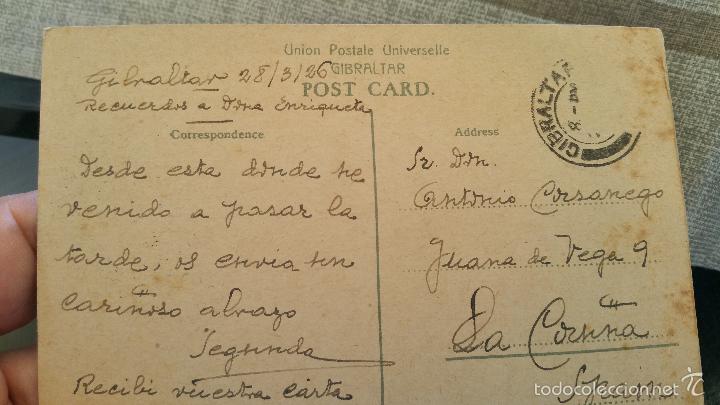 Union Postale Universelle
GIBRALTAR
POST CARD.
Gibraltar 28/3/26
Recuerdos a Dona Enriqueta
Correspondence
Desde esta donde he
venido a pasar la
tarde, os envia un
cariñoso abrazo
Segunda
Recibi vuestra carta
Address
Sr. Don.
Antonio Corsanego
Juana de Vega 9
La Coruña
Spain
GIBRALTAR
GIBRALTAR
todocoleccion